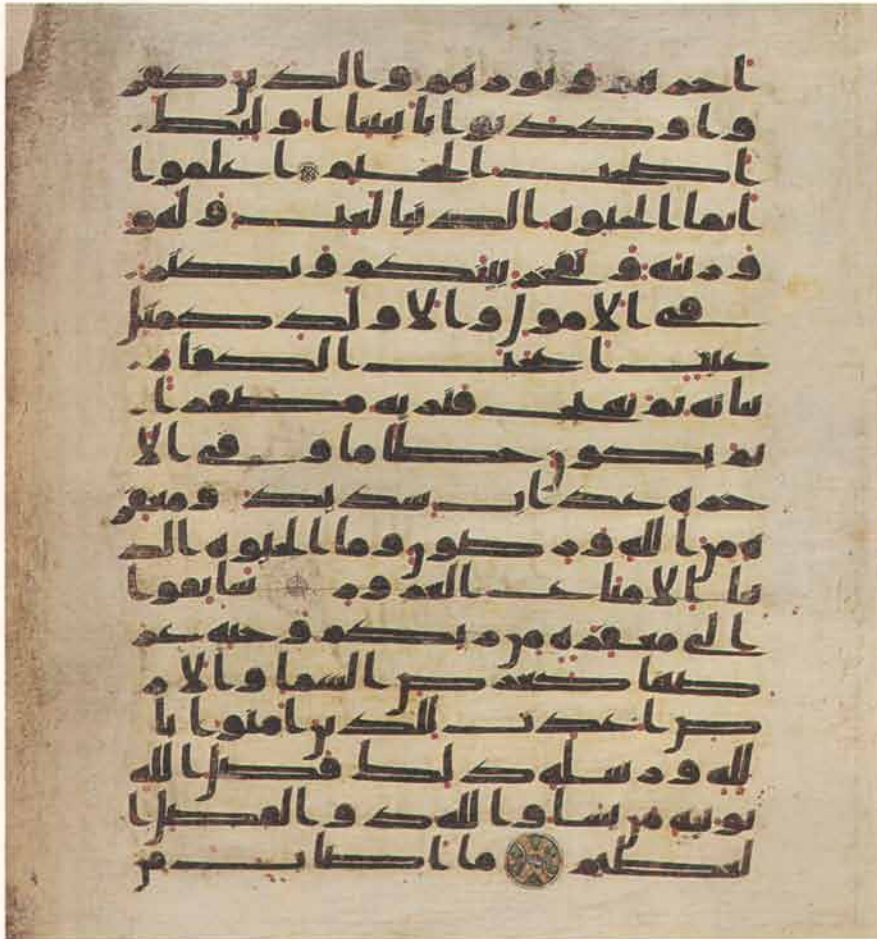 اجرهم ونورهم والذين كفر
وا وكذبوا باييتنا اوليك
اصحب الجحيم اعلموا
انما الحيوة الدنيا لعب ولهو
وزينة وتفخر بينكم وتكثر
في الامول والاولد كمثل
غيث اعجب الكفار
نباته ثم يهيج فتريه مصفرا
ثم يكون حطاما وفي الا
خرة عذاب شديد ومغفر
ة من الله ورضون وما الحيوة الد
نيا الا متاع الغرور سابقوا
الى مغفرة من ربكم وجنة عر
ضها كعرض السما والار
ض اعدت للذين امنوا با
لله ورسله ذلك فضل الله
يوتيه من يشا والله ذو الفضل ا
لعظيم ما اصاب من